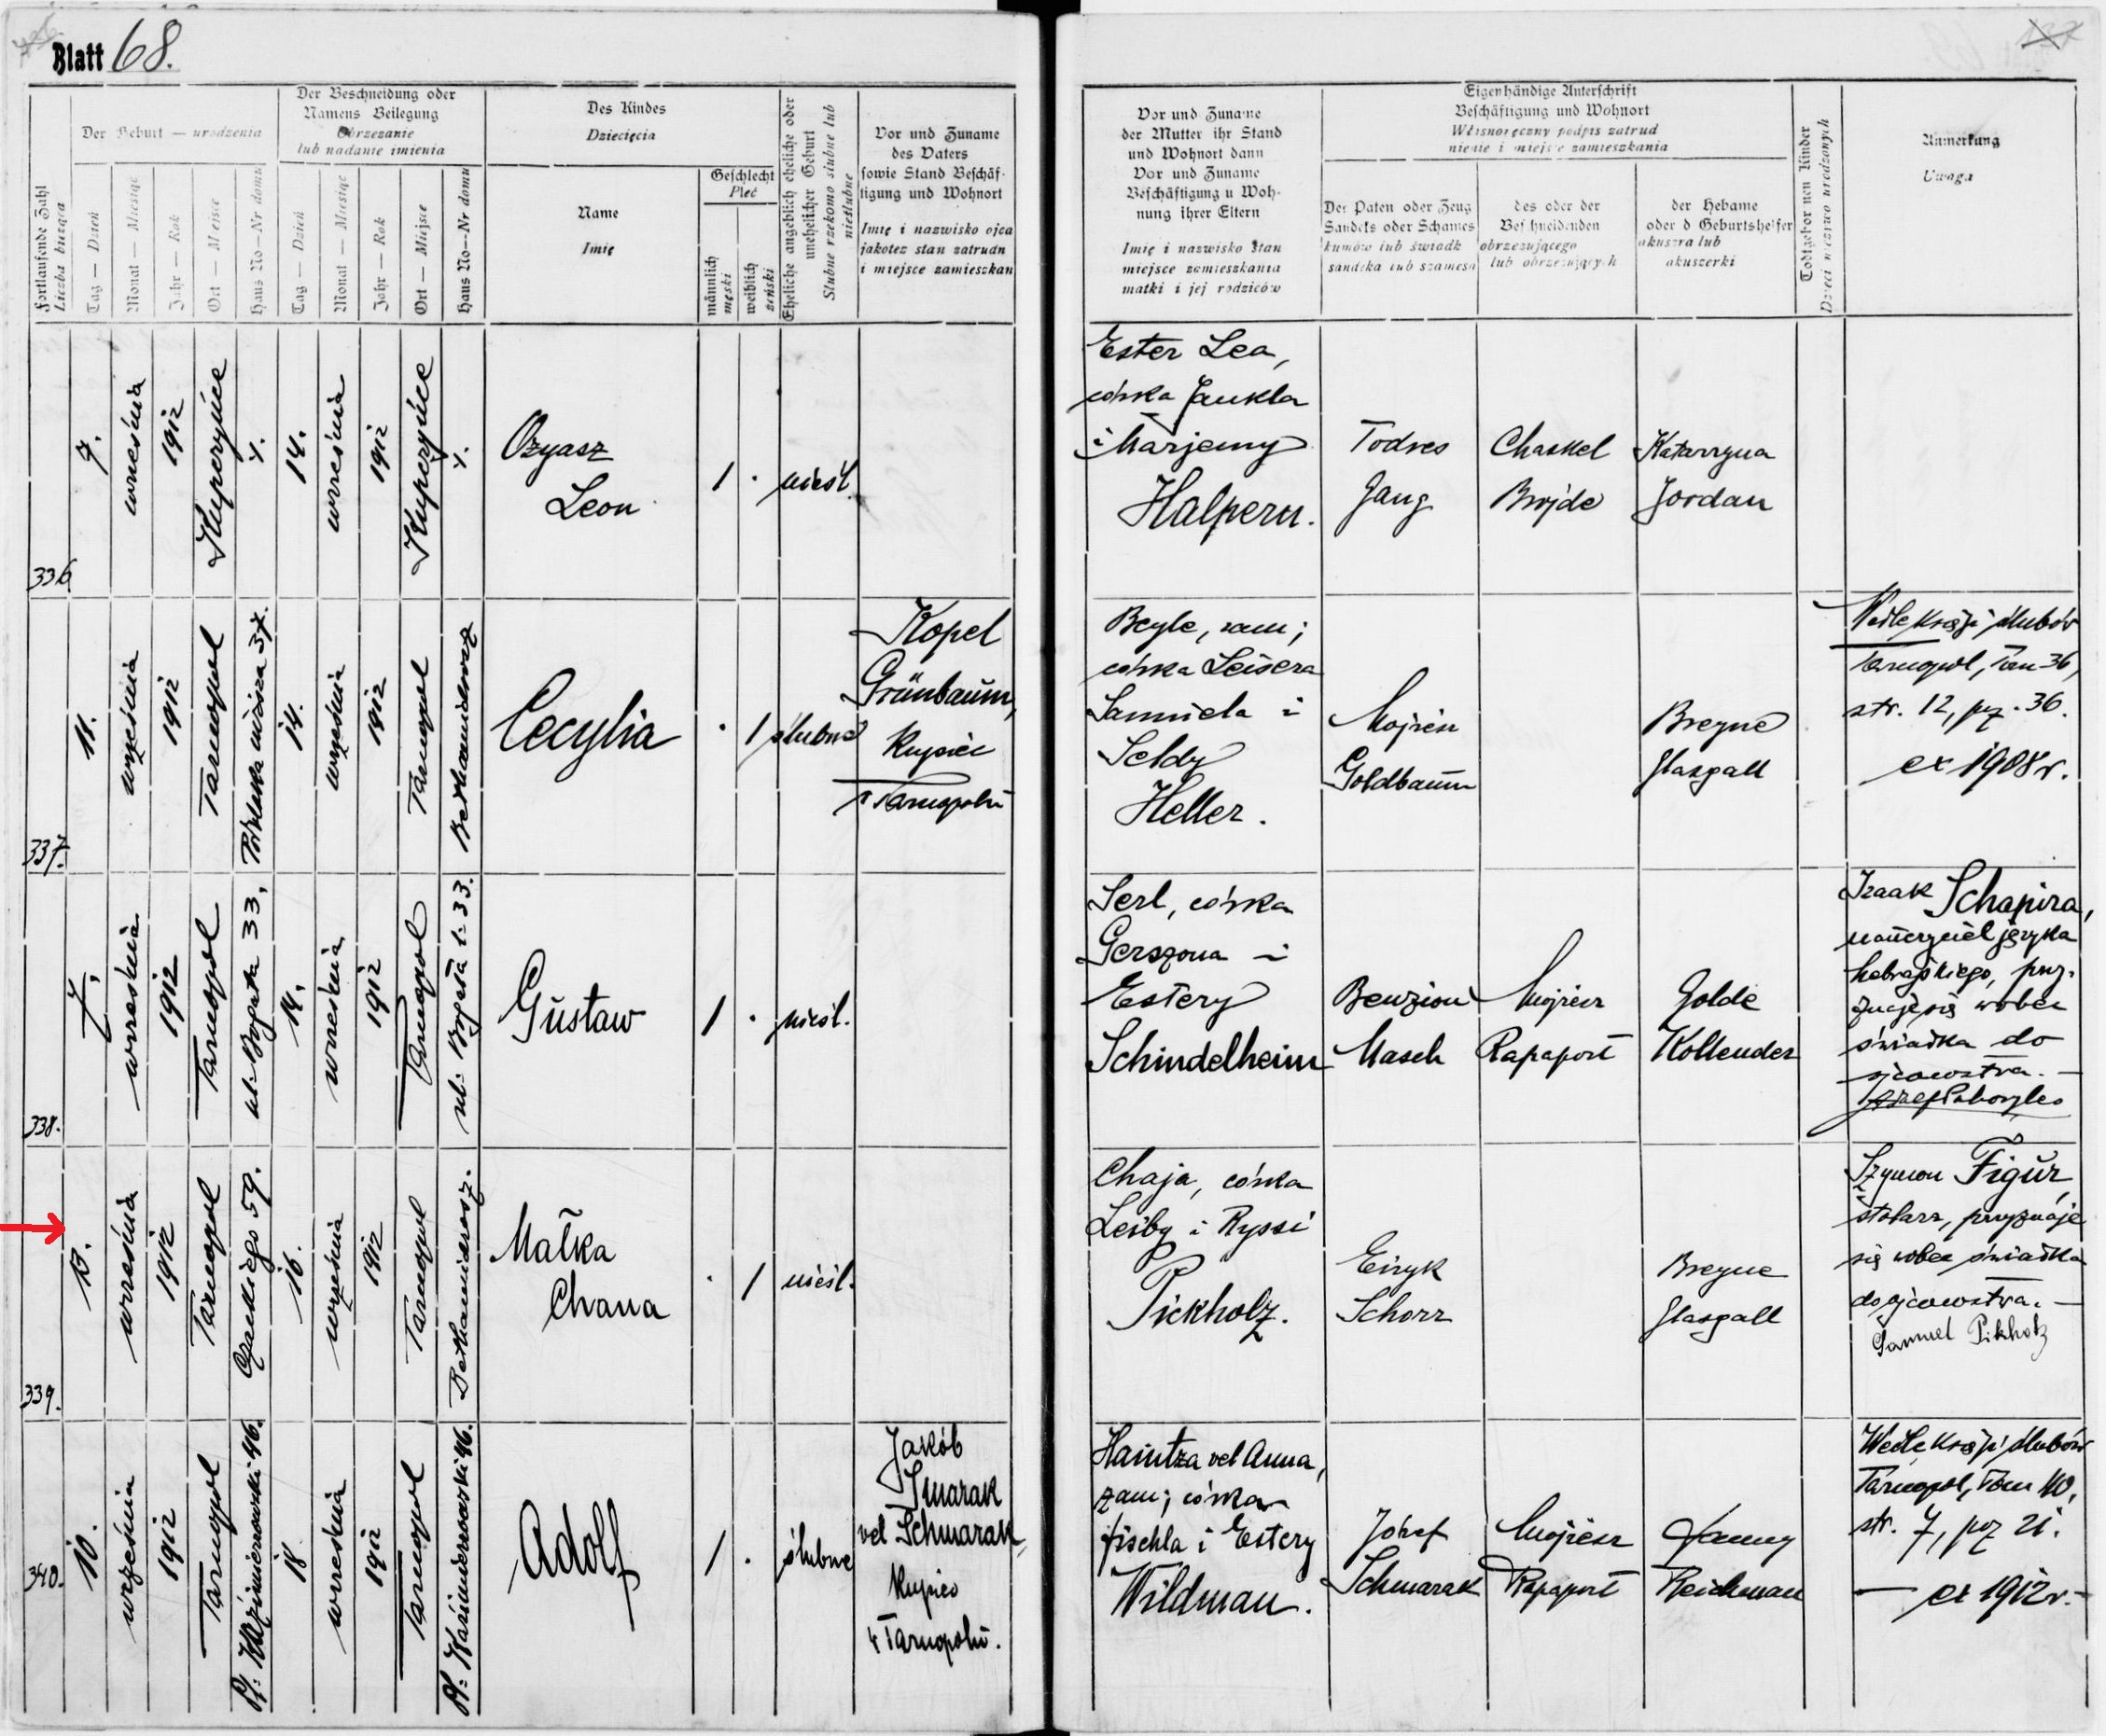 Blatt 68.
Fortlaufende Zahl
Liczba bieżąca
Der Geburt — urodzenia
Tag — Dzień
Monat — Miesiąc
Jahr — Rok
Ort — Miejsce
Haus No—Nr domu
Der Beschneidung oder
Namens Beilegung
Obrzezanie
lub nadanie imienia
Tag — Dzień
Monat — Miesiąc
Jahr — Rok
Ort — Miejsce
Haus No—Nr domu
Des Kindes
Dziecięcia
Name
Imię
Geschlecht
Płeć
männlich
męski
weiblich
żeński
Eheliche angeblich eheliche oder
unehelicher Geburt
Ślubne rzekomo ślubne lub
nieślubne
Vor und Zuname
des Vaters
sowie Stand Beschäf-
tigung und Wohnort
Imię i nazwisko ojca
jakoteż stan zatrudn
i miejsce zamieszkan
Vor und Zuname
der Mutter ihr Stand
und Wohnort dann
Vor und Zuname
Beschäftigung u Woh-
nung ihrer Eltern
Imię i nazwisko stan
miejsce zamieszkania
matki i jej rodziców
Eigenhändige Unterschrift
Beschäftigung und Wohnort
Własnoręczny podpis zatrud
nienie i miejsce zamieszkania
Der Paten oder Zeug
Sandeks oder Schames
kumów lub świadk
sandeka lub szamesa
des oder der
Beschneidenden
obrzezującego
lub obrzezujących
der Hebame
oder d Geburtshelfer
akuszra lub
akuszerki
Todtgeborenen Kinder
Dzieci nieżywo urodzonych
Anmerkung
Uwaga
336
7.
września
1912
14.
września
1912
Ozyasz
Leon
1 .
nieśl.
Ester Lea,
córka Jankla
i Marjemy
Halpern.
Todres
Gang
Chaskel
Brojde
Katarzyna
Jordan
337.
11.
września
1912
Tarnopol
14.
września
1912
Tarnopol
Cecylia
. 1
ślubne
Kopel
Grünbaum,
kupiec
w Tarnopolu
Beyle, zam;
córka Leisera
Samuela i
Seldy
Heller.
Mojżesz
Goldbaum
Breyne
Glasgall
Wedle księgi ślubów
Tarnopol, Tom 36,
str. 12, poz. 36.
ex 1908 r.
338.
7.
września
1912
Tarnopol
ul. Bogata 33,
14.
września
1912
Tarnopol
ul. Bogata l. 33.
Gustaw
1 .
nieśl.
Serl, córka
Gerszona i
Estery
Schindelheim
Benzion
Masch
Mojżesz
Rapaport
Golde
Kollender
Izaak Schapira,
nauczyciel języka
hebrajskiego, przy-
znaje się wobec
świadka do
ojcowstwa. —
339.
13.
września
1912
Tarnopol
59.
16.
września
1912
Tarnopol
Małka
Chana
. 1
nieśl.
Chaja, córka
Leiby i Ryssi
Pickholz.
Eizyk
Schorr
Breyne
Glasgall
Szymon Figur,
stolarz, przyznaje
się wobec świadka
do ojcowstwa. —
Samuel Pikholz
340.
10.
września
1912
Tarnopol
Pl. Kazimierowski 46.
18
września
1912
Tarnopol
Pl. Kazimierowski 46.
Adolf
1 .
ślubne
Jakób
Smarak
vel Schmarak,
kupiec
w Tarnopolu.
Haintza vel Anna,
zam; córka
Fischla i Estery
Wildman.
Józef
Schmarak
Mojżesz
Rapaport
Fanny
Reichman
Wedle księgi ślubów
Tarnopol, Tom 40,
str. 7, poz 21.
— ex 1912 r. —